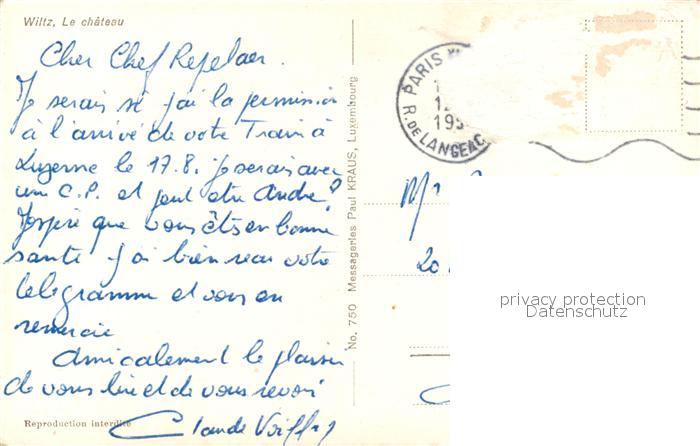 Wiltz, Le château
Cher Chef Repelaer.
Je serais si j'ai la permission
à l'arrivé de vote Train à
Luzerne le 17.8. je serais avec
un C.P. et peut etre André?
J'espère que vous êts en bonne
santé J'ai bien recu votre
telegramme et vous en
remercie
Amicalement le plaisir
de vous lire et de vous revoir
Claude
Reproduction interdite
No. 750 Messageries Paul KRAUS, Luxembourg
PARIS
R. DE LANGEAC
20
privacy protection
Datenschutz